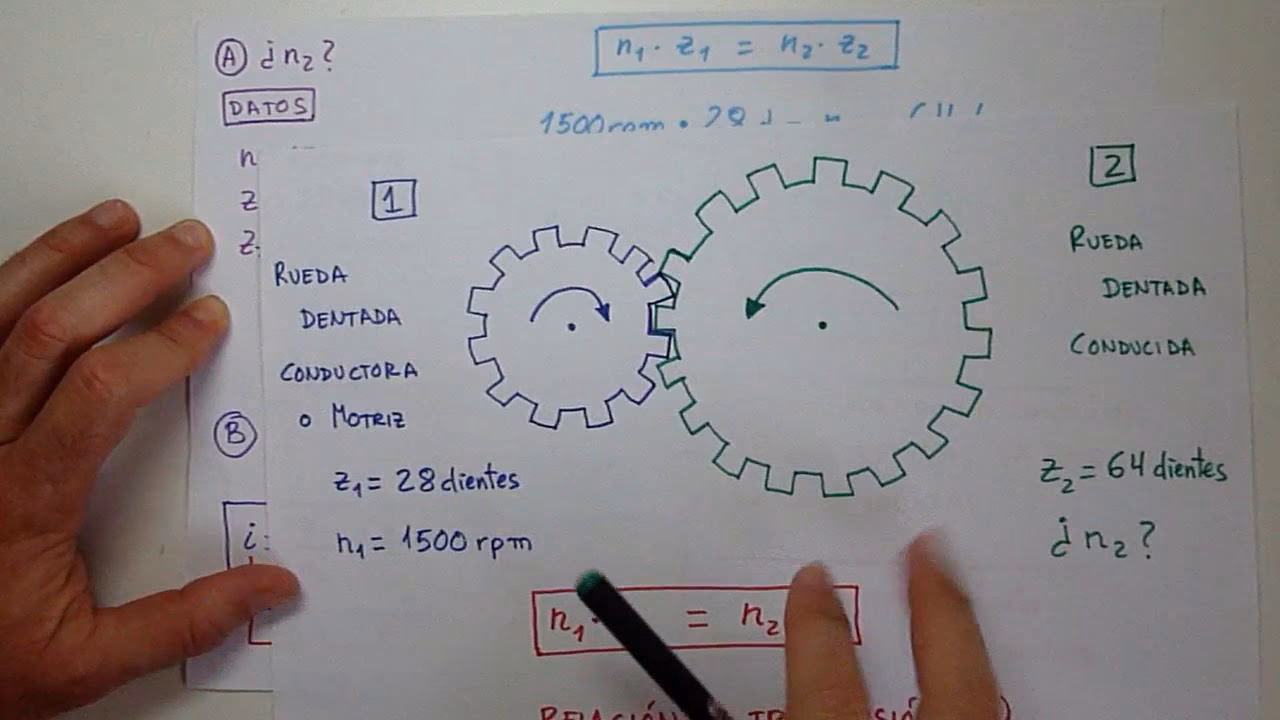 A ¿n₂?
n₁ · z₁ = n₂ · z₂
DATOS
1500rpm ·
n
z
z
1
RUEDA
DENTADA
CONDUCTORA
o MOTRIZ
z₁ = 28 dientes
n₁ = 1500 rpm
2
RUEDA
DENTADA
CONDUCIDA
z₂ = 64 dientes
¿n₂?
B
i =
n₁ · = n₂
RELACIÓN